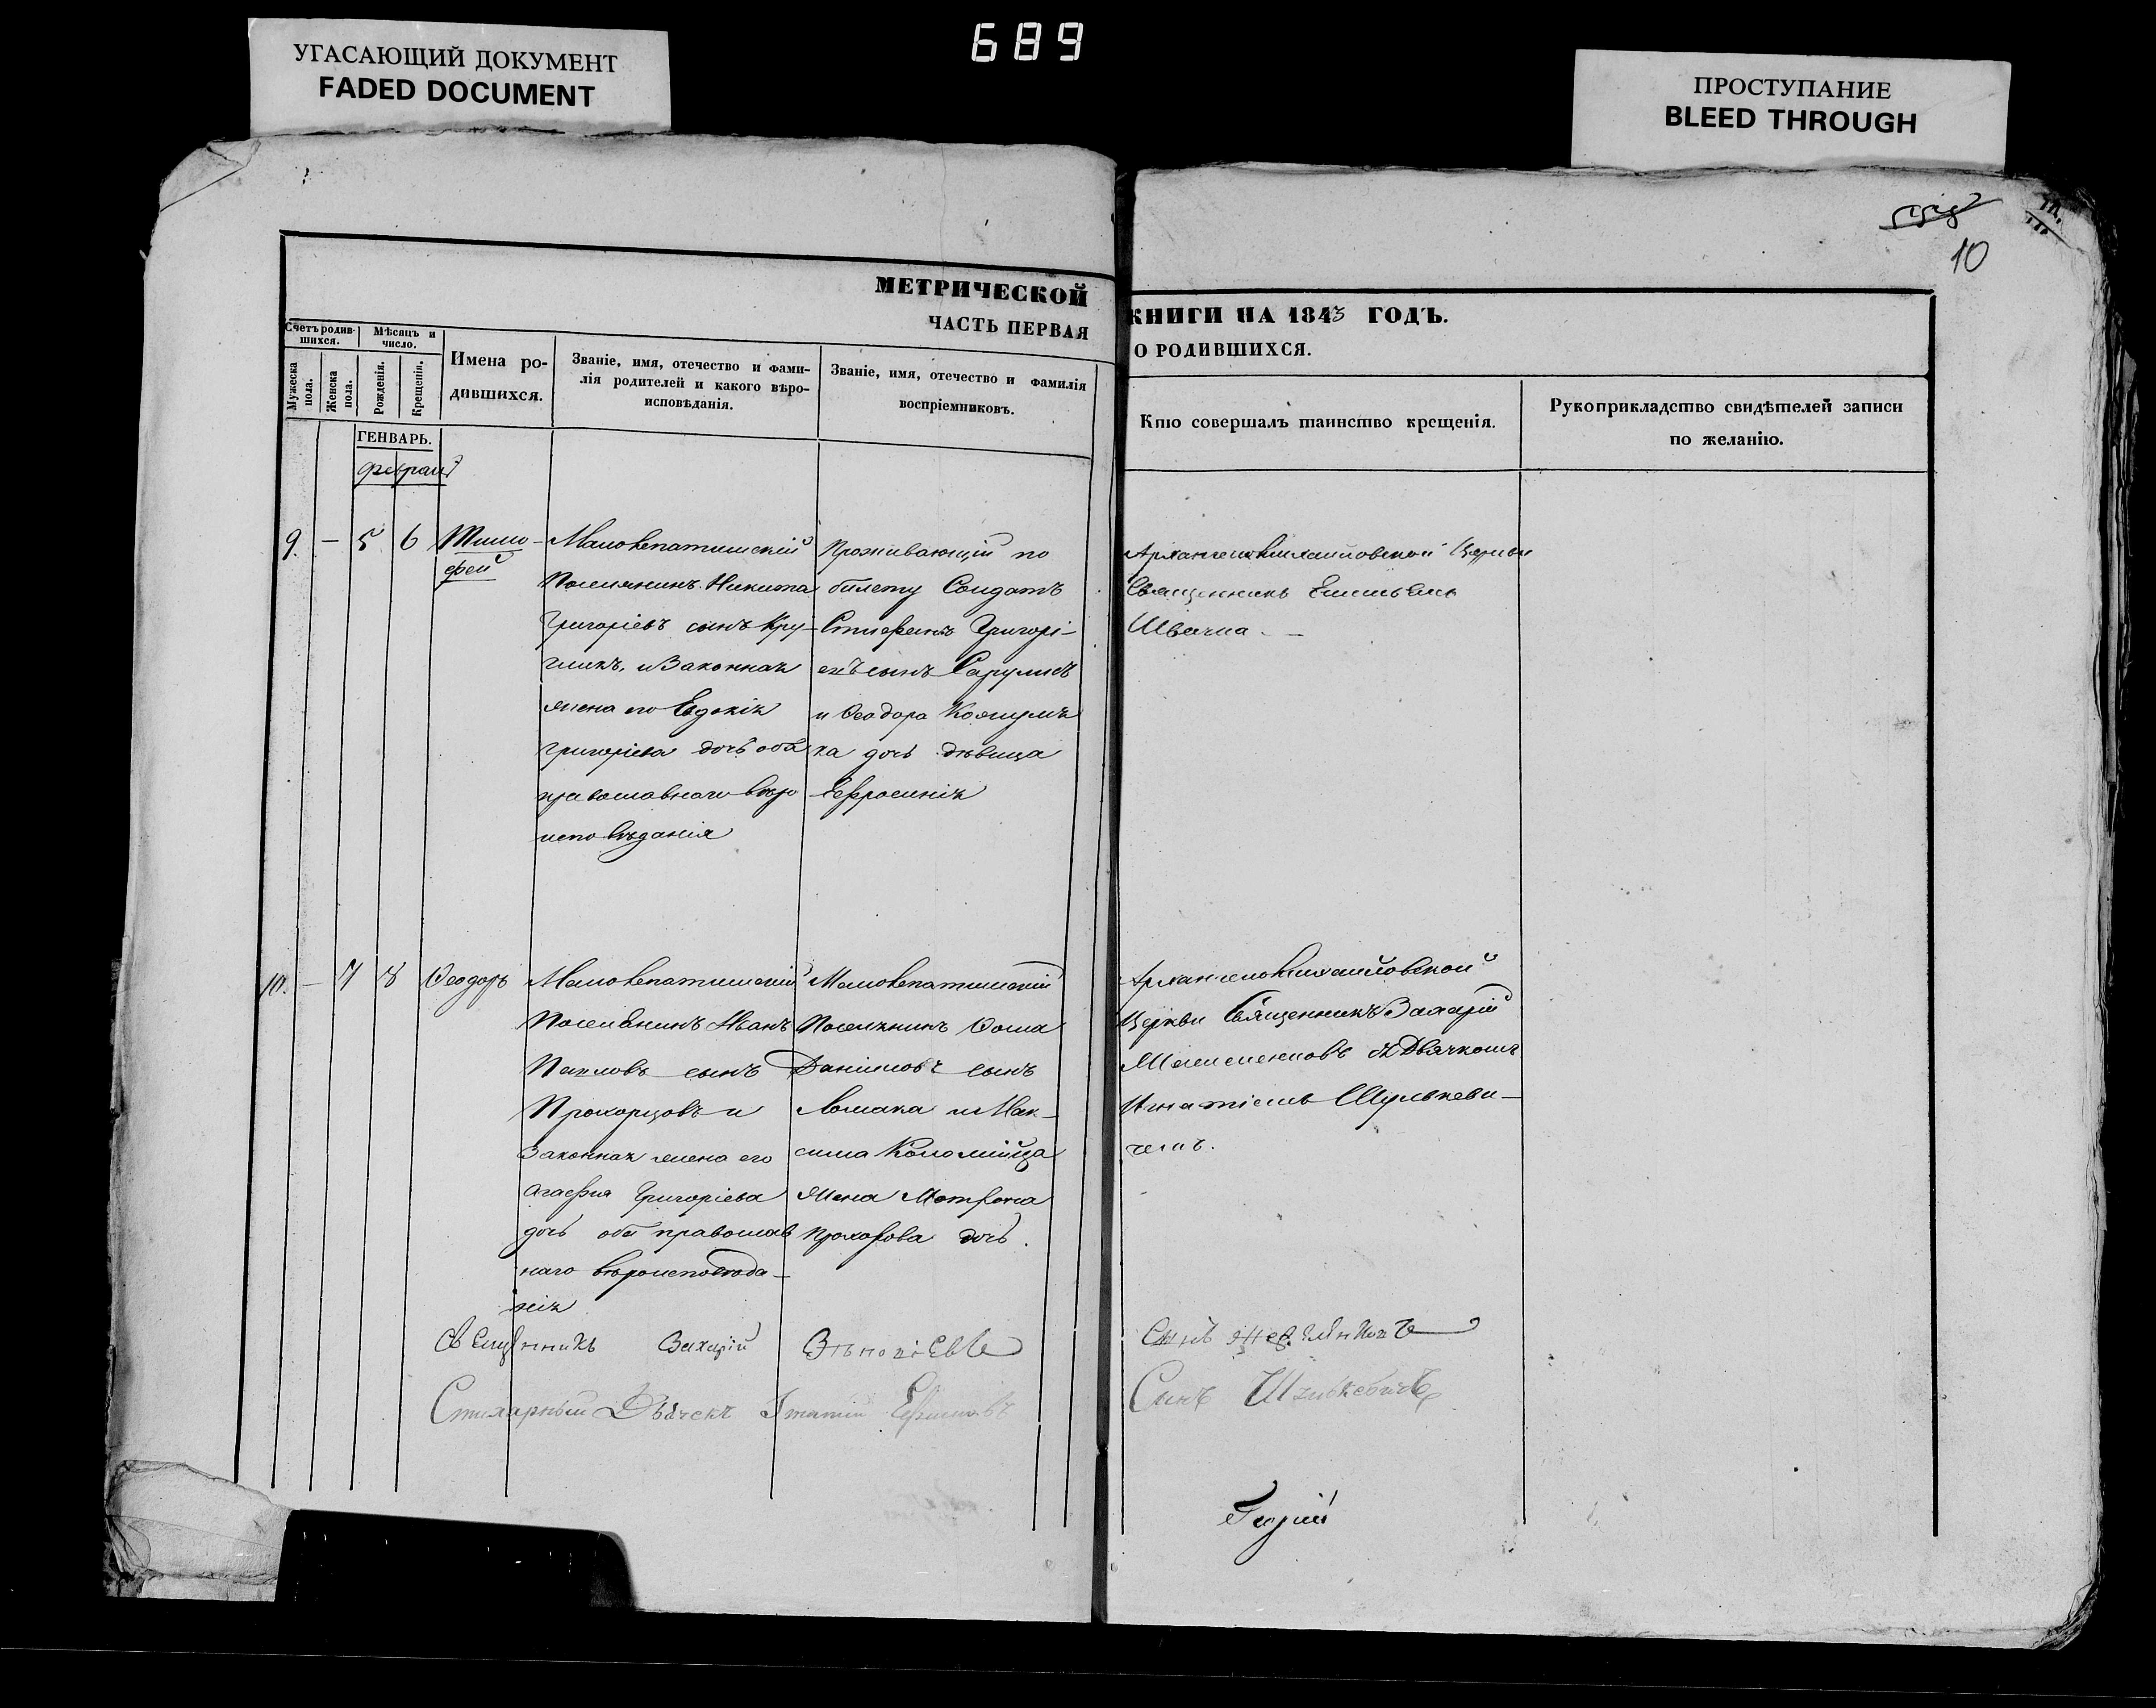 689
УГАСАЮЩИЙ ДОКУМЕНТ
FADED DOCUMENT
ПРОСТУПАНИЕ
BLEED THROUGH
10
МЕТРИЧЕСКОЙ
ЧАСТЬ ПЕРВАЯ
КНИГИ НА 1843 ГОДЪ.
О РОДИВШИХСЯ.
Счетъ родив-
шихся.
Мѣсяцъ и
число.
Мужеска
пола.
Женска
пола.
Рожденія.
Крещенія.
Имена ро-
дившихся.
Званіе, имя, отечество и фами-
лія родителей и какого вѣро-
исповѣданія.
Званіе, имя, отечество и фамилія
воспріемниковъ.
Кто совершалъ таинство крещенія.
Рукоприкладство свидѣтелей записи
по желанію.
ГЕНВАРЬ.
9. — 5 6
Тимо-
фей
Поселянинъ Никита
Григоріевъ сынъ Кру-
и Законная
жена его Евдокія
Григорієва дочь оба
православнаго вѣро
исповѣданія
Проживающій по
билету Солдатъ
Стефанъ Григорі-
евъ сынъ
и Ѳеодора
ка дочь дѣвица
Ефросинія
Архангеломихайловской Церкви
Священникъ Емельянъ
10. — 7 8
Ѳеодоръ
Поселянинъ Иванъ
Павловъ сынъ
Прохорцовъ и
Законная жена его
Агафия Григоріева
дочь оба православ
наго вѣроисповѣда-
нія
Поселянинъ Ѳома
Даниловъ сынъ
Ломака и Мак-
сима Коломийца
жена Матрона
Прохорова дочь.
Архангеломихайловской
Церкви Священникъ Захарій
съ Дьячкомъ
Игнатіемъ Шулькеви-
чемъ.
Священникъ Захарій
Стихарный Дьячекъ Игнатій
Сынъ
Георгій